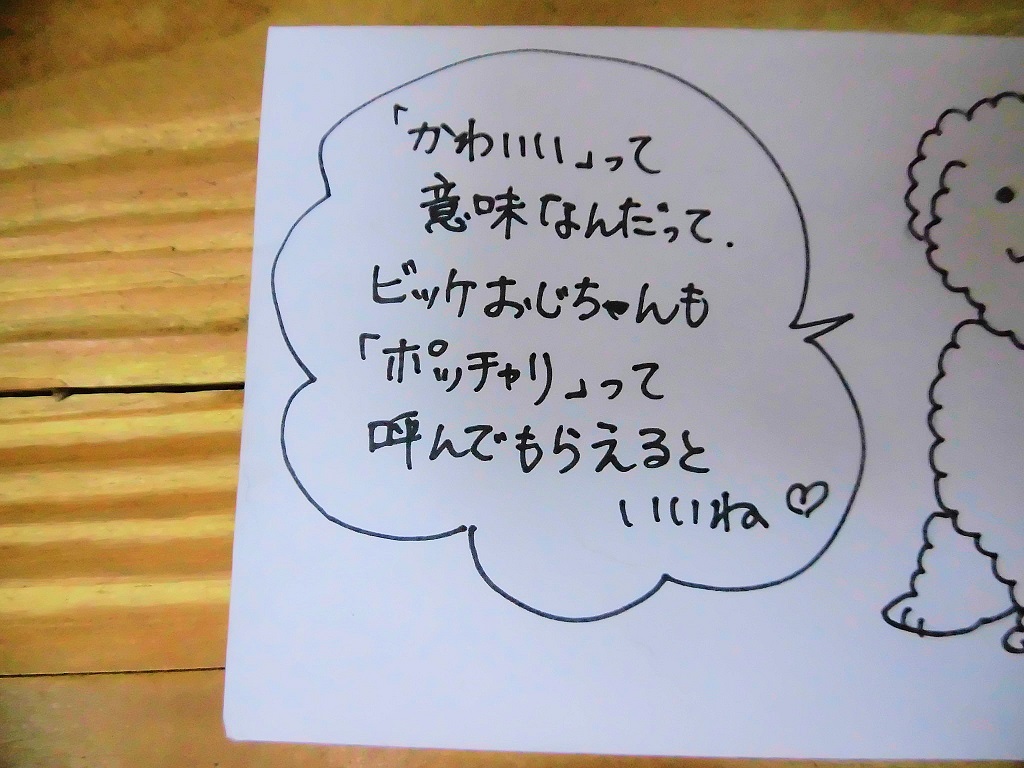 「かわいい」って
意味なんだって.
ビッケおじちゃんも
「ポッチャリ」って
呼んでもらえると
いいね♡